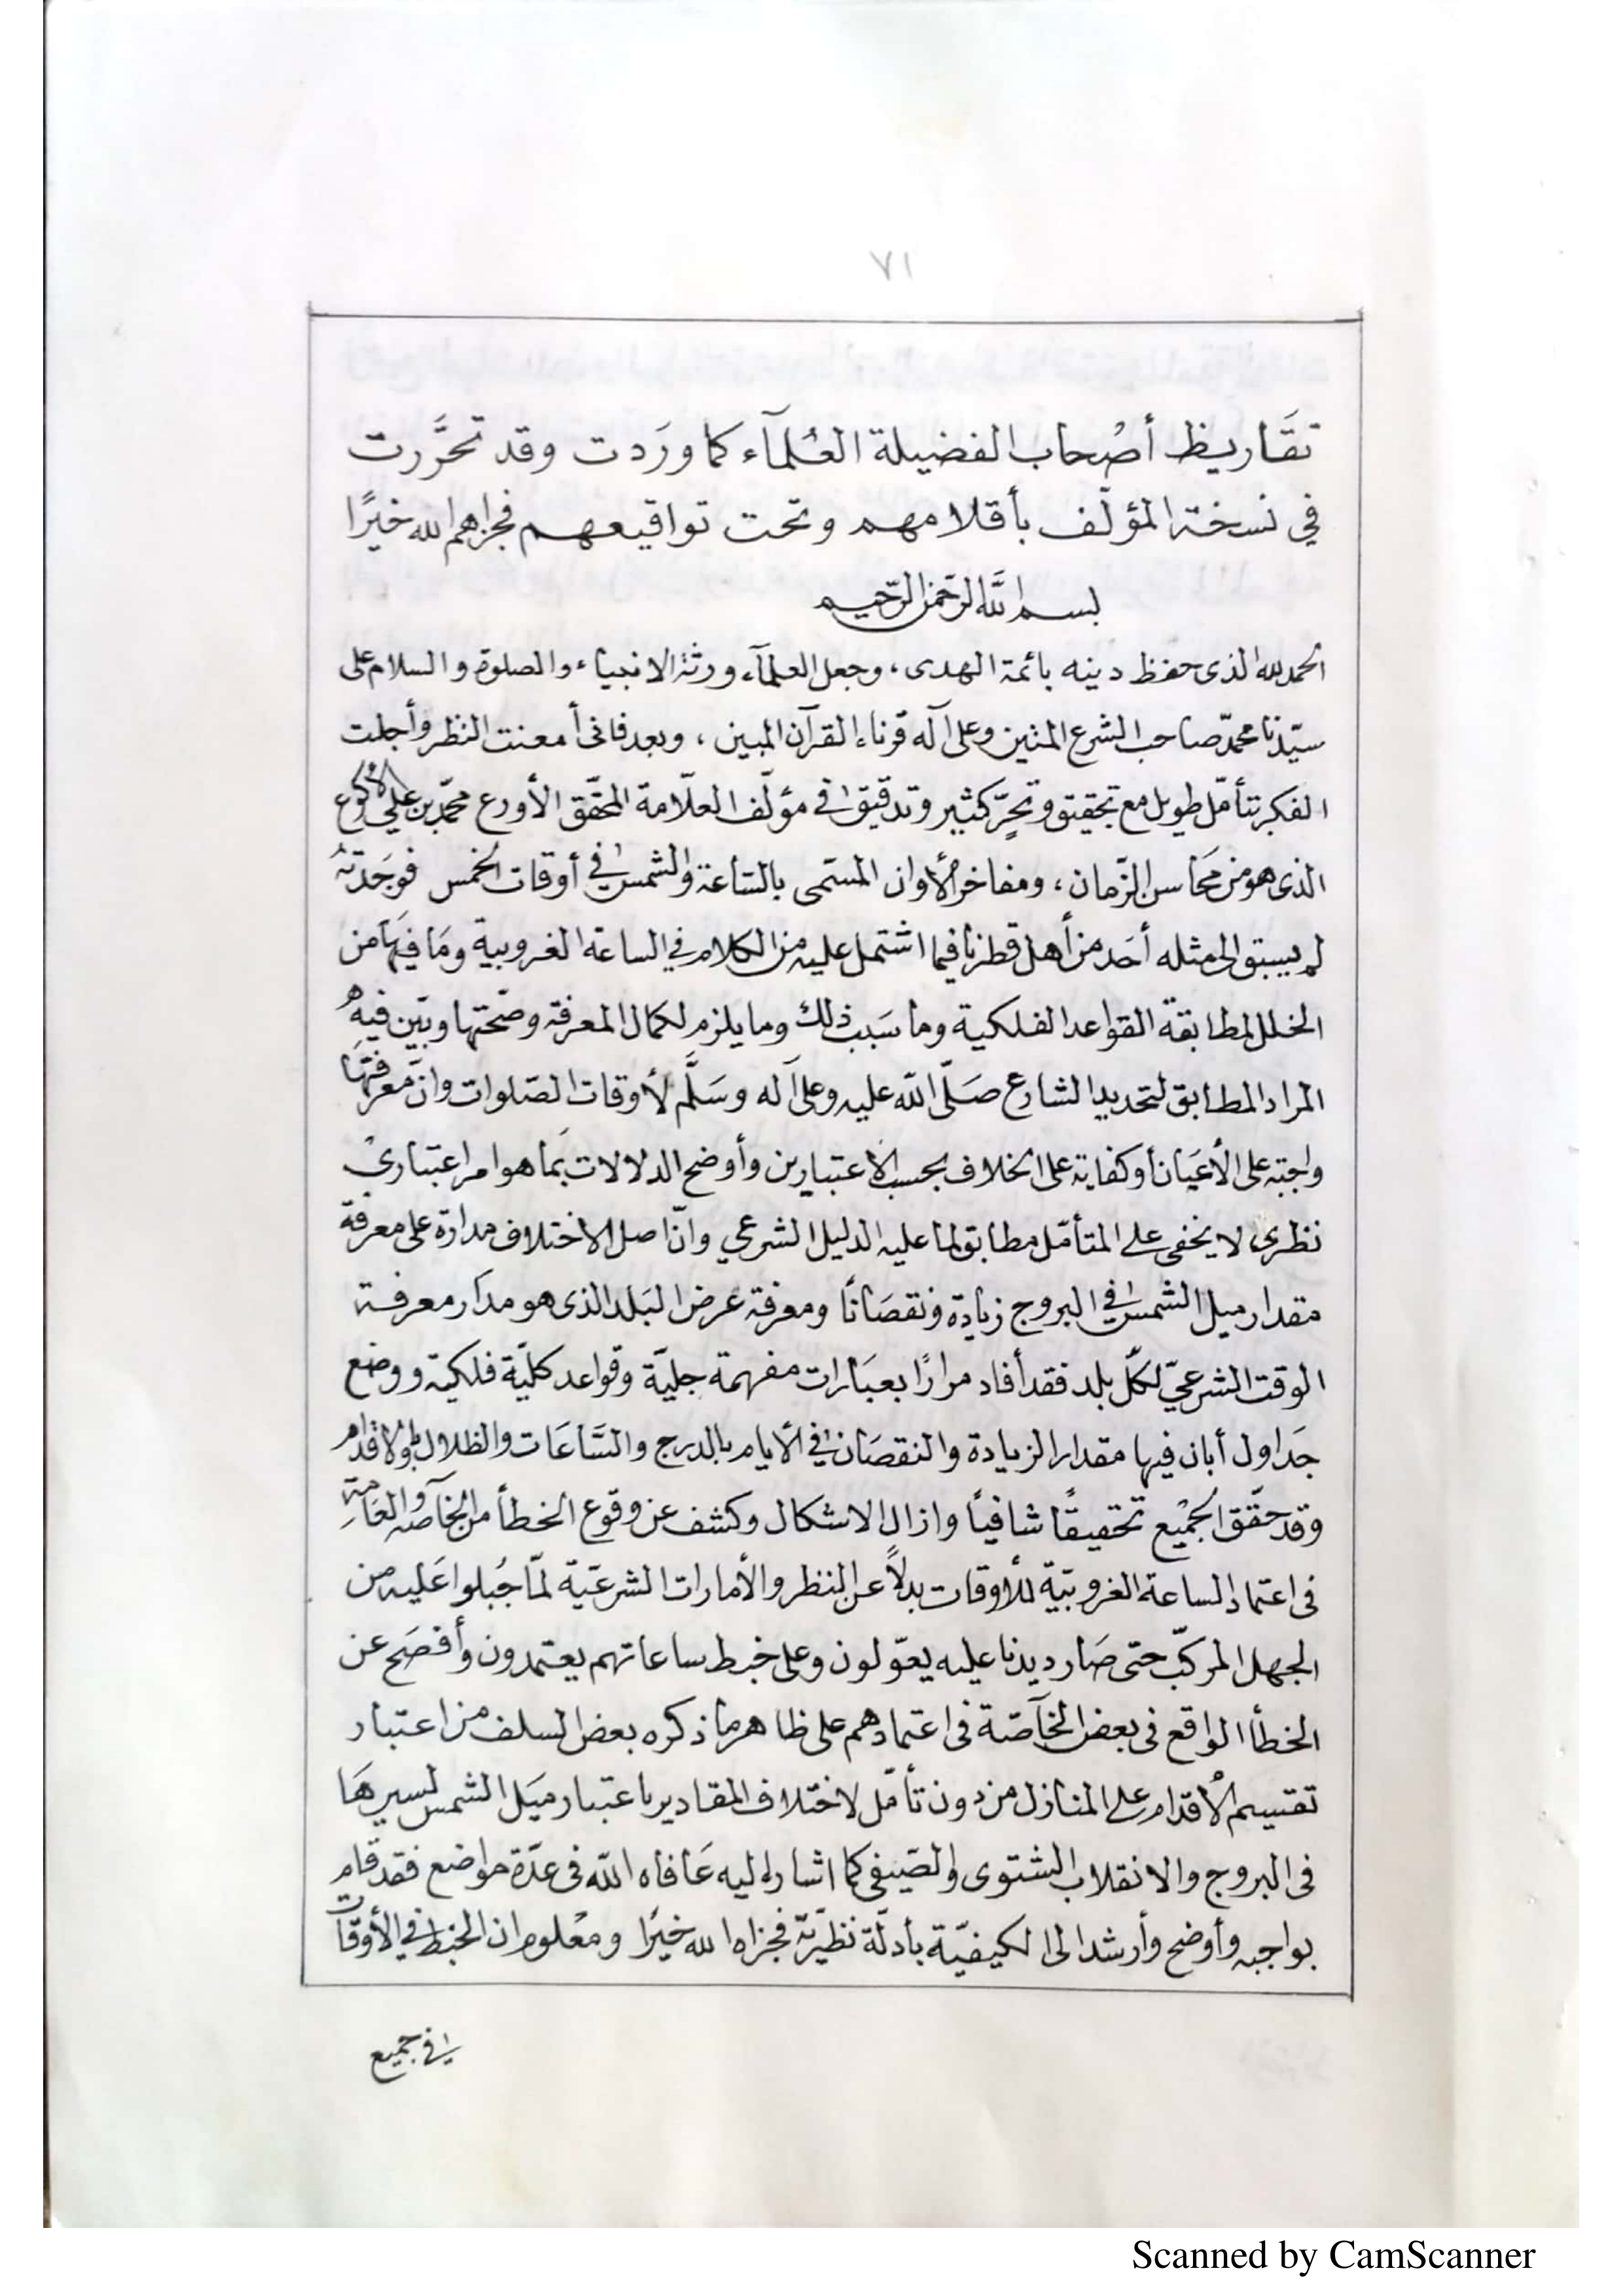 ٧١
تقَاريظ أصْحاب الفضيلة العُلمآء كما ورَدت وقد تحَرَّرت
في نسخة المؤلّف بأقلامهم وتحت تواقيعهم فجزاهم الله خيرًا
بسم الله الرّحمن الرّحيم
الحمد لله الذى حفظ دينه بائمة الهدى، وجعل العلمآء ورثة الانبياء والصلوة والسلام على
سيّدنا محمّد صاحب الشرع المتين وعلى آله قرناء القرآن المبين، وبعد فانى أمعنت النظر وأجلت
الفكر بتأمّل طويل مع تحقيق وتحرٍّ كثير وتدقيق في مؤلّف العلّامة المحقّق الأورع محمّد بن علي الأكوع
الذى هو من محَاسن الزّمان، ومفاخر الأوان المسّمى بالسّاعة والشمس في أوقات الخمس فوَجَدتهُ
لم يسبق الى مثله أحَد من أهل قطرنا فيما اشتمل عليه من الكلام في الساعة الغروبية ومَا فيهَا من
الخلل لمطابقة القواعد الفلكية وما سَبب ذلك وما يلزم لكمال المعرفة وصّحتها وبيّن فيه
المراد المطابق لتحديد الشارع صَلّى الله عليه وعلى آله وسَلَّم لأوقات الصّلوات وانّ معرفتهَا
واجبة على الأعيَان أو كفاية على الخلاف بحسب الاعتبارين وأوضح الدلالات بمَا هو امر اعتبارىْ
نظرى لا يخفى على المتأمّل مطابق لما عليه الدليل الشرعي وانّ اصل الاختلاف مدارة على معرفة
مقدار ميل الشمس في البروج زيادة ونقصَانًا ومعرفة عرض البَلد الذى هو مدَار معرفة
الوقت الشرعيّ لكلّ بلد فقد أفاد مرارًا بعبَارات مفهمة جليّة وقواعد كليّة فلكية ووضع
جَداول أبان فيها مقدار الزيادة والنقصَان في الأيام بالدرج والسَّاعَات والظلال والاقدام
وقد حقّق الجميْع تحقيقًا شافيًا وازال الاشكال وكشف عن وقوع الخطأ من الخآصّه والعَامّة
فى اعتماد الساعة الغروبيّة للأوقات بدلاً عن النظر والأمارات الشرعيّة لمّا جُبلوا عَليه من
الجهل المركبّ حتى صَار ديدنا عليه يعوّلون وعلى خبط ساعاتهم يعتمدون وأفصَح عن
الخطأ الواقع فى بعض الخآصّة فى اعتمادهم على ظاهر ما ذكره بعض السلف من اعتبار
تقسيم الأقدام على المنازل من دون تأمّل لاختلاف المقادير باعتبار ميَل الشمس لسيرهَا
فى البروج والانقلاب الشتوى والصّيفى كما اشار اليه عَافاه الله فى عدّة مواضع فقد قام
بواجبه وأوضح وأرشد الى الكيفيّة بأدلّة نظريّة فجزاه الله خيَرًا ومعْلوم ان الخبط في الأوقات
في جميع
Scanned by CamScanner